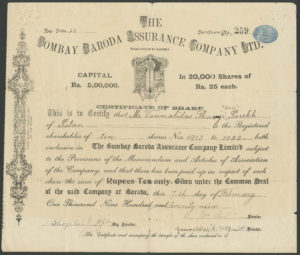 THE
Certificate No. 259
BOMBAY BARODA ASSURANCE COMPANY LTD.
CAPITAL
Rs. 5,00,000.
in 20,000 Shares of
Rs. 25 each.
CERTIFICATE OF SHARE
This is to Certify that Mr. Vanmalidas Parekh
of Patan is the Registered
shareholder of ten shares Nos 1913 to 1922 both
inclusive in The Bombay Baroda Assurance Company Limited subject
to the Provisions of the Memorandum and Articles of Association
of the Company, and that there has been paid up in respect of each
share the sum of Rupees Ten only. Given under the Common Seal
of the said Company at Baroda, this 7th day of February
One Thousand Nine Hundred and twenty nine
Director
Director